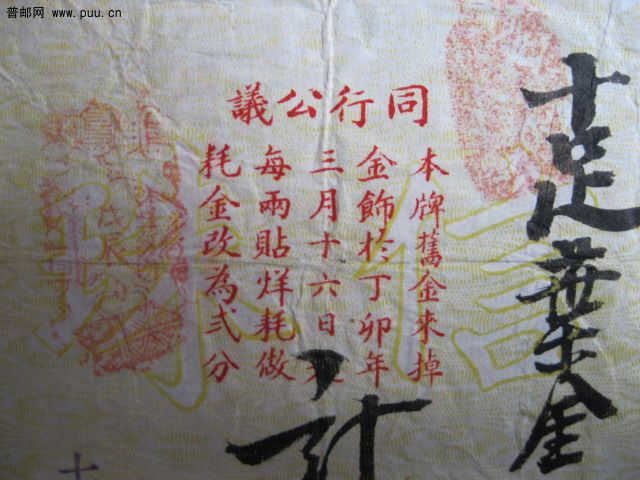 普邮网 www.puu.cn
十足葉金
同行公議
本牌舊金來掉
金飾於丁卯年
三月十六日
每兩貼烊耗做
耗金改為弍分
計
信
戊辰
十